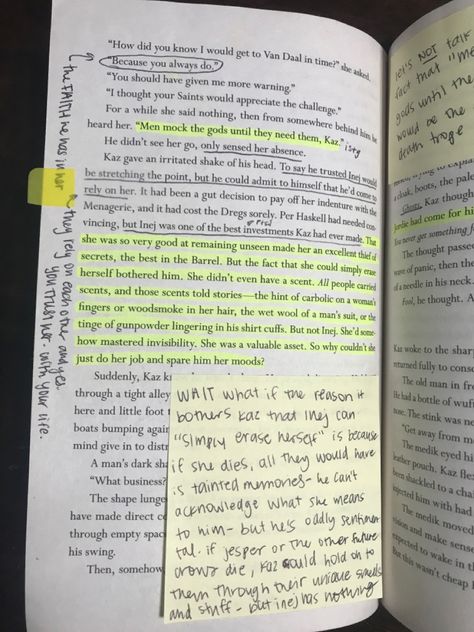 "How did you know I would get to Van Daal in time?" she asked.
"Because you always do."
"You should have given me more warning."
"I thought your Saints would appreciate the challenge."
For a while she said nothing, then from somewhere behind him he
heard her. "Men mock the gods until they need them, Kaz."
He didn't see her go, only sensed her absence.
Kaz gave an irritated shake of his head. To say he trusted Inej would
be stretching the point, but he could admit to himself that he'd come to
rely on her. It had been a gut decision to pay off her indenture with the
Menagerie, and it had cost the Dregs sorely. Per Haskell had needed con-
vincing, but Inej was one of the best investments Kaz had ever made. That
she was so very good at remaining unseen made her an excellent thief of
secrets, the best in the Barrel. But the fact that she could simply erase
herself bothered him. She didn't even have a scent. All people carried
scents, and those scents told stories—the hint of carbolic on a woman's
fingers or woodsmoke in her hair, the wet wool of a man's suit, or the
tinge of gunpowder lingering in his shirt cuffs. But not Inej. She'd some-
how mastered invisibility. She was a valuable asset. So why couldn't she
just do her job and spare him her moods?
Suddenly, Kaz
through a tight alley
here and little foot
boats bumping again
mind give in to distr
A man's dark sha
"What business?
The shape lunge
have made direct co
through empty space
his swing.
Then, somehow,
the FAITH he has in her
they rely on each other and yea.
you trust her - with your life.
WAIT what if the reason it
bothers Kaz that Inej can
"simply erase herself" is because
if she dies, all they would have
is tainted memories - he can't
acknowledge what she means
to him - but he's oddly sentimen
tal. if jesper or the other future
crows die, Kaz could hold on to
them through their unique smells
and stuff - but inej has nothing
let's NOT talk
fact that "me
gods until the
would be the
death troge
a cloak, boots, the pale
Ghezen, Kaz thought
Jordie had come for hi
You never get something f
The thought passed
wave of panic, then the
of a needle in his neck.
Fool, he thought. A
Kaz woke to the shar
returned fully to conse
The old man in fr
He had a bottle of wuf
nose. The stink was ne
"Get away from m
The medik eyed hi
leather pouch. Kaz flex
been shackled to a cha
injected him with had
The medik moved
vision and make sense
expected to wake in th
But this wasn't cheap f